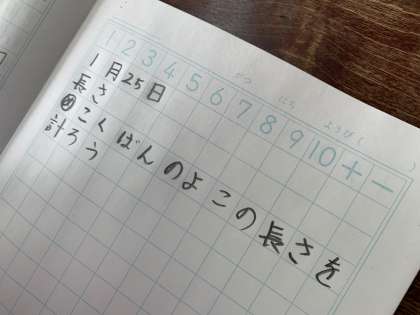 がつ にち ようび( )
1 2 3 4 5 6 7 8 9 10 + −
1月25日
長さ
めこくばんのよこの長さを
計ろう